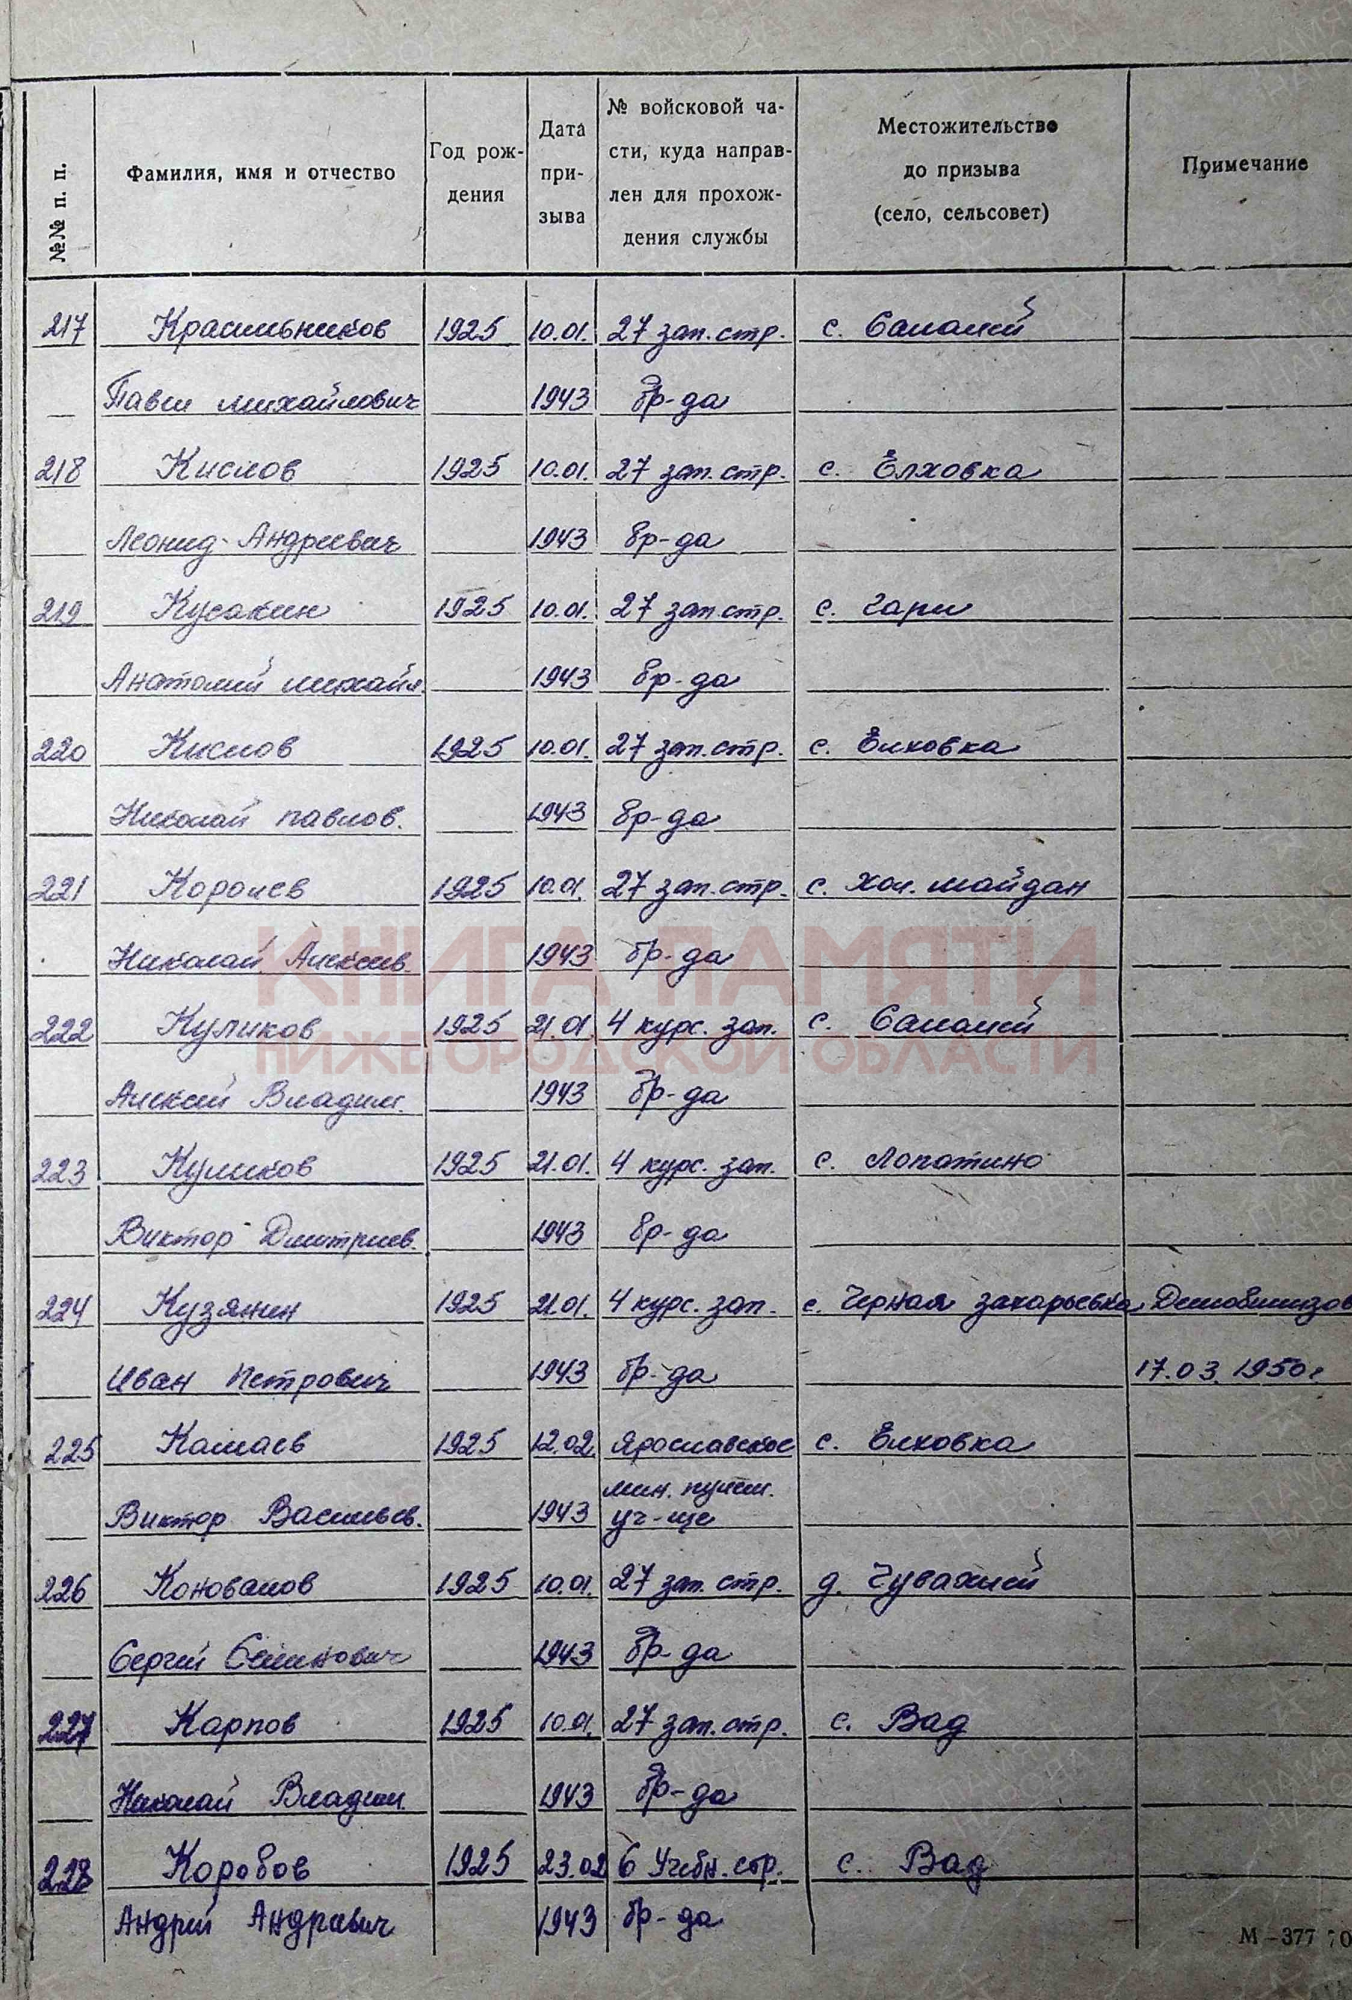 №№ п. п.
Фамилия, имя и отчество
Год рож-
дения
Дата
при-
зыва
№ войсковой ча-
сти, куда направ-
лен для прохож-
дения службы
Местожительство
до призыва
(село, сельсовет)
Примечание
217 Красильников 1925 10.01. 27 зап. стр. с. Салалей
Павел Михайлович 1943 бр-да
218 Кислов 1925 10.01. 27 зап. стр. с. Елховка
Леонид Андреевич 1943 бр-да
219 Кусакин 1925 10.01. 27 зап. стр. с. Гари
Анатолий Михайл. 1943 бр-да
220 Кислов 1925 10.01. 27 зап. стр. с. Елховка
Николай Павлов. 1943 бр-да
221 Королев 1925 10.01. 27 зап. стр. с. Хол. Майдан
Николай Алексеев. 1943 бр-да
КНИГА ПАМЯТИ
222 Куликов 1925 21.01. 4 курс. зап. с. Салалей
НИЖЕГОРОДСКОЙ ОБЛАСТИ
Алексей Владим. 1943 бр-да
223 Куликов 1925 21.01. 4 курс. зап. с. Лопатино
Виктор Дмитриев. 1943 бр-да
224 Кузянин 1925 21.01. 4 курс. зап. с. Черная Захарьевка Демобилизов
Иван Петрович 1943 бр-да 17.03.1950 г
225 Камаев 1925 12.02. Ярославское с. Елховка
мин. пулем.
Виктор Васильев. 1943 уч-ще
226 Коновалов 1925 10.01. 27 зап. стр. д. Чувахлей
Сергей Семенович 1943 бр-да
227 Карпов 1925 10.01. 27 зап. стр. с. Вад
Николай Владим. 1943 бр-да
228 Коробов 1925 23.02 6 Учебн. стр. с. Вад
Андрей Андреевич 1943 бр-да
М-377